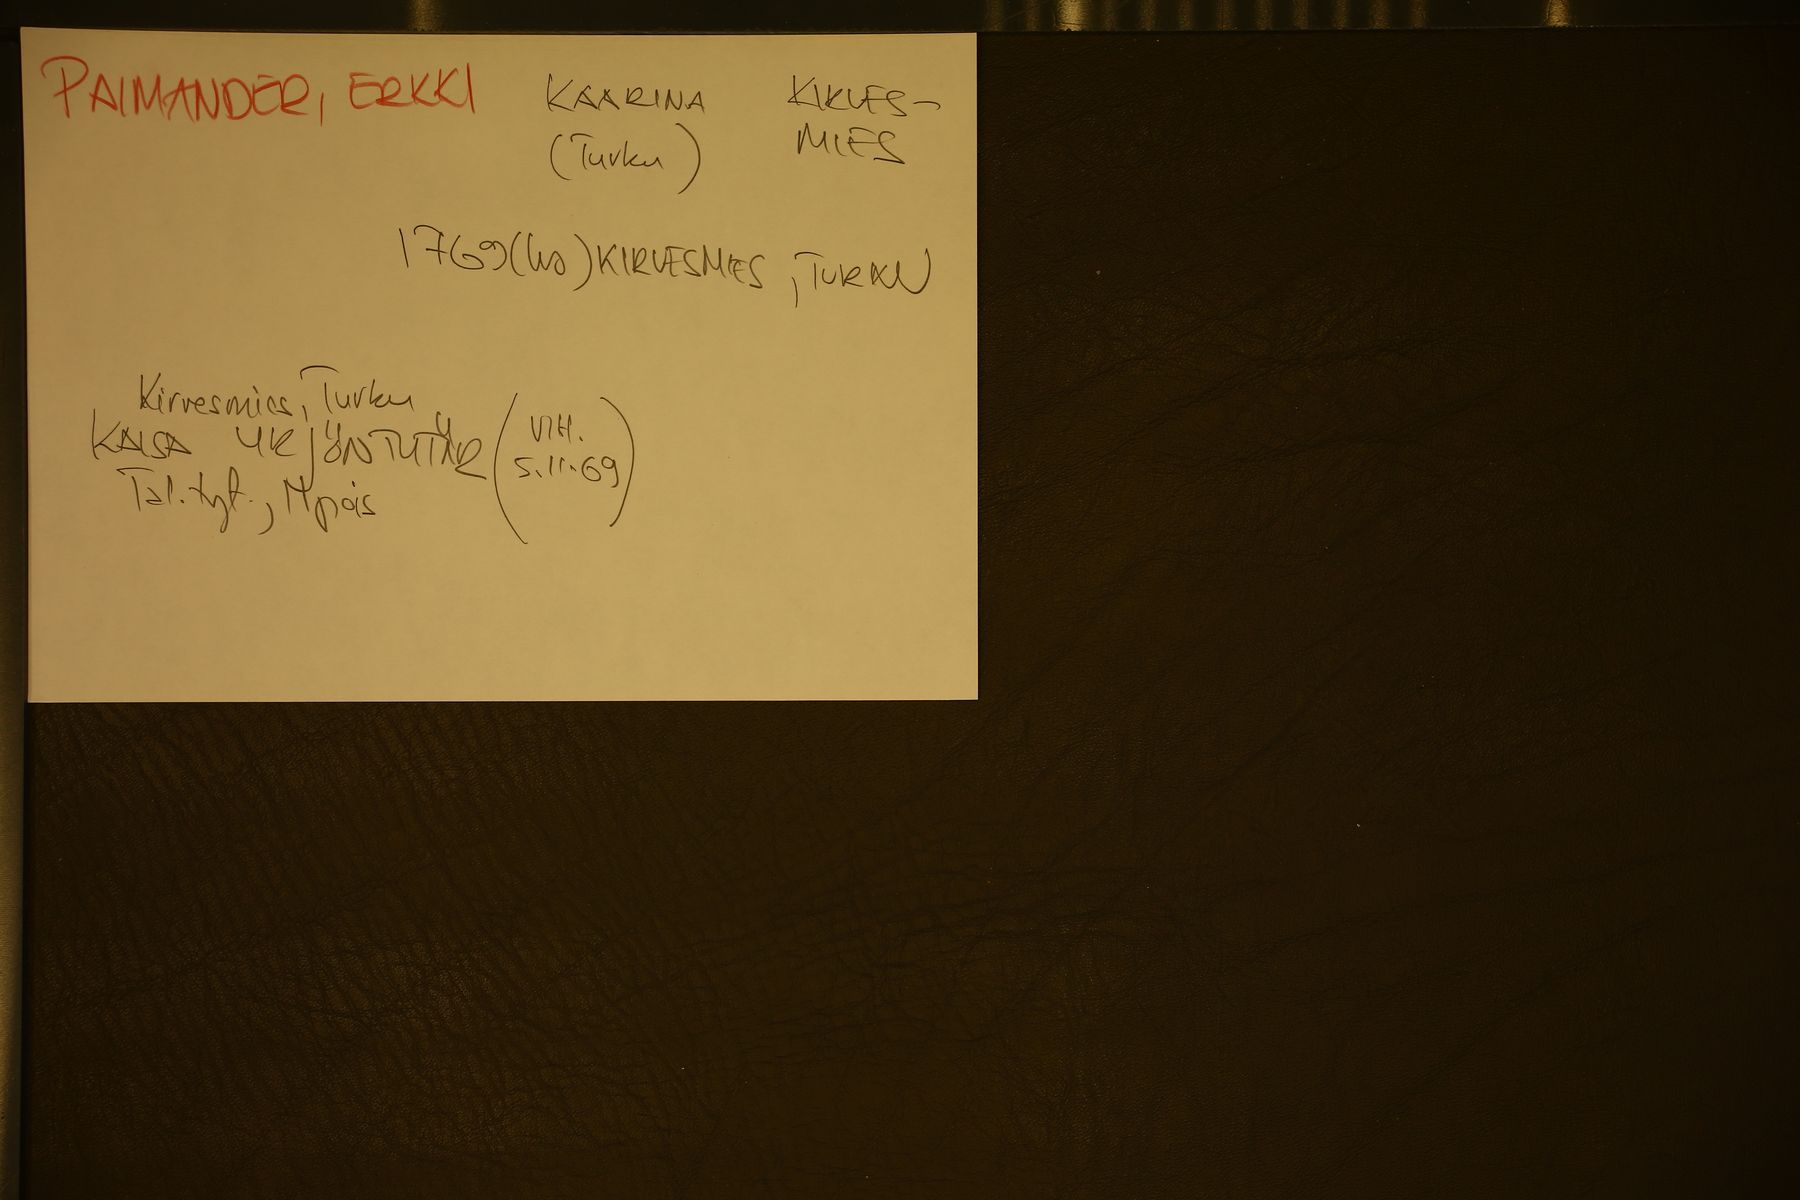 PAIMANDER, ERKKI KAARINA KIRVES-
(Turku) MIES
1769 (ks) KIRVESMIES, TURKU
Kirvesmies, Turku
KAISA YRJÖNTYTÄR (VIH.
5.11.69)
Tal. tyt.,